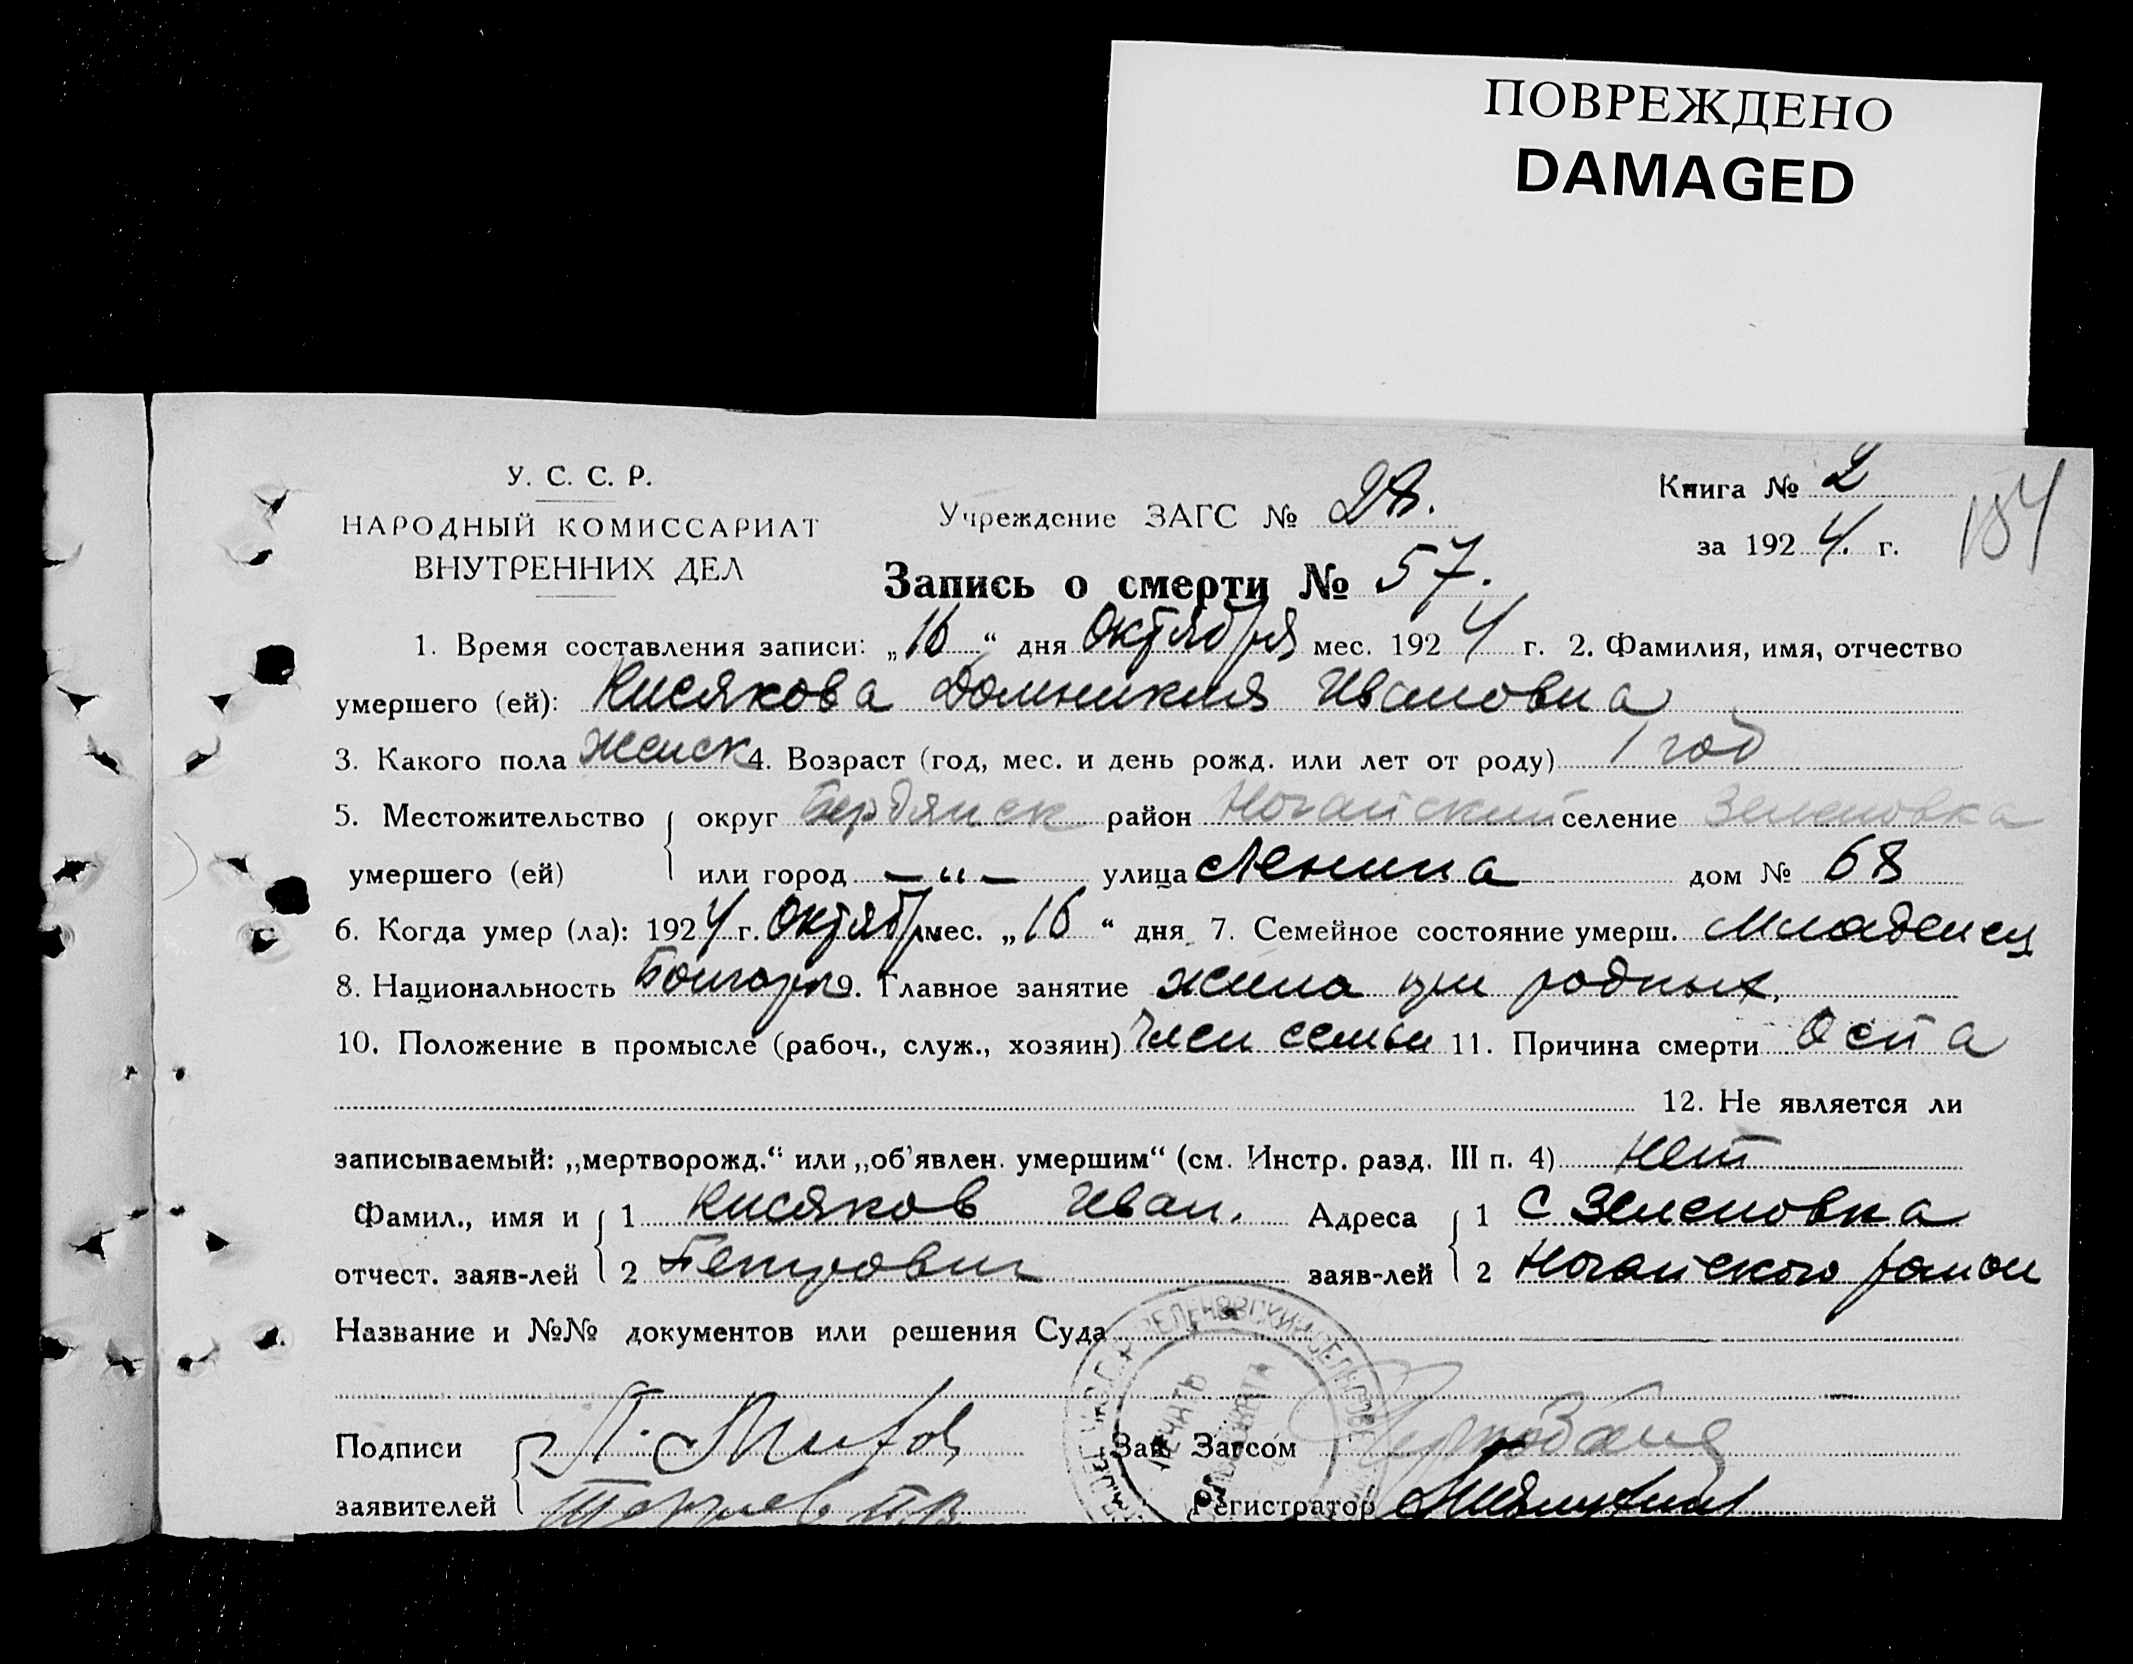 ПОВРЕЖДЕНО
DAMAGED
У. С. С. Р.
НАРОДНЫЙ КОМИССАРИАТ
ВНУТРЕННИХ ДЕЛ
Учреждение ЗАГС № 28.
Книга № 2
за 1924 г.
184
Запись о смерти № 57.
1. Время составления записи: „16“ дня Октября мес. 1924 г. 2. Фамилия, имя, отчество
умершего (ей): Кисякова Домникия Ивановна
3. Какого пола женск 4. Возраст (год, мес. и день рожд. или лет от роду) 1 год
5. Местожительство округ Бердянск район Ногайский селение Зеленовка
умершего (ей) или город — „ — улица Ленина дом № 68
6. Когда умер (ла): 1924 г. Октябр мес. „16“ дня 7. Семейное состояние умерш. Младенец
8. Национальность 9. Главное занятие жила при родных,
10. Положение в промысле (рабоч., служ., хозяин) Член семьи 11. Причина смерти Оспа
12. Не является ли
записываемый: „мертворожд.“ или „об'явлен. умершим“ (см. Инстр. разд. III п. 4) нет
Фамил., имя и 1 Кисяков Иван. Адреса 1 С Зеленовка
отчест. заяв-лей 2 Петрович заяв-лей 2 Ногайского
Название и №№ документов или решения Суда
Подписи Зав. Загсом
заявителей Регистратор